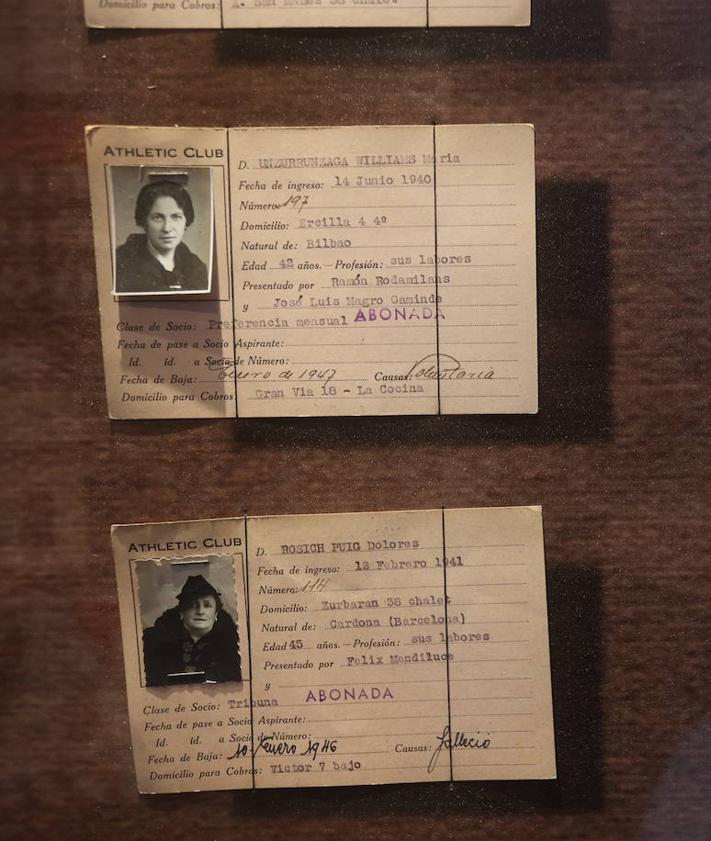 Domicilio para Cobros: A. San Mames 38 chalet
ATHLETIC CLUB
D. UNZURRUNZAGA WILLIAMS Maria
Fecha de ingreso: 14 Junio 1940
Número: 197
Domicilio: Ercilla 4 4º
Natural de: Bilbao
Edad 42 años.—Profesión: sus labores
Presentado por Ramón Rodamilans
y José Luis Magro Gaminde
Clase de Socio: Preferencia mensual ABONADA
Fecha de pase a Socio Aspirante:
Id. id. a Socio de Número:
Fecha de Baja: Enero de 1947 Causas: Voluntaria
Domicilio para Cobros Gran Via 18 - La Cocina
ATHLETIC CLUB
D. ROSICH PUIG Dolores
Fecha de ingreso: 12 Febrero 1941
Número: 114
Domicilio: Zurbaran 38 chalet
Natural de: Cardona (Barcelona)
Edad 45 años.—Profesión: sus labores
Presentado por Felix Mendiluce
y
ABONADA
Clase de Socio: Tribuna
Fecha de pase a Socio Aspirante:
Id. id. a Socio de Número:
Fecha de Baja: 10 Enero 1946 Causas: falleció
Domicilio para Cobros: Victor 7 bajo